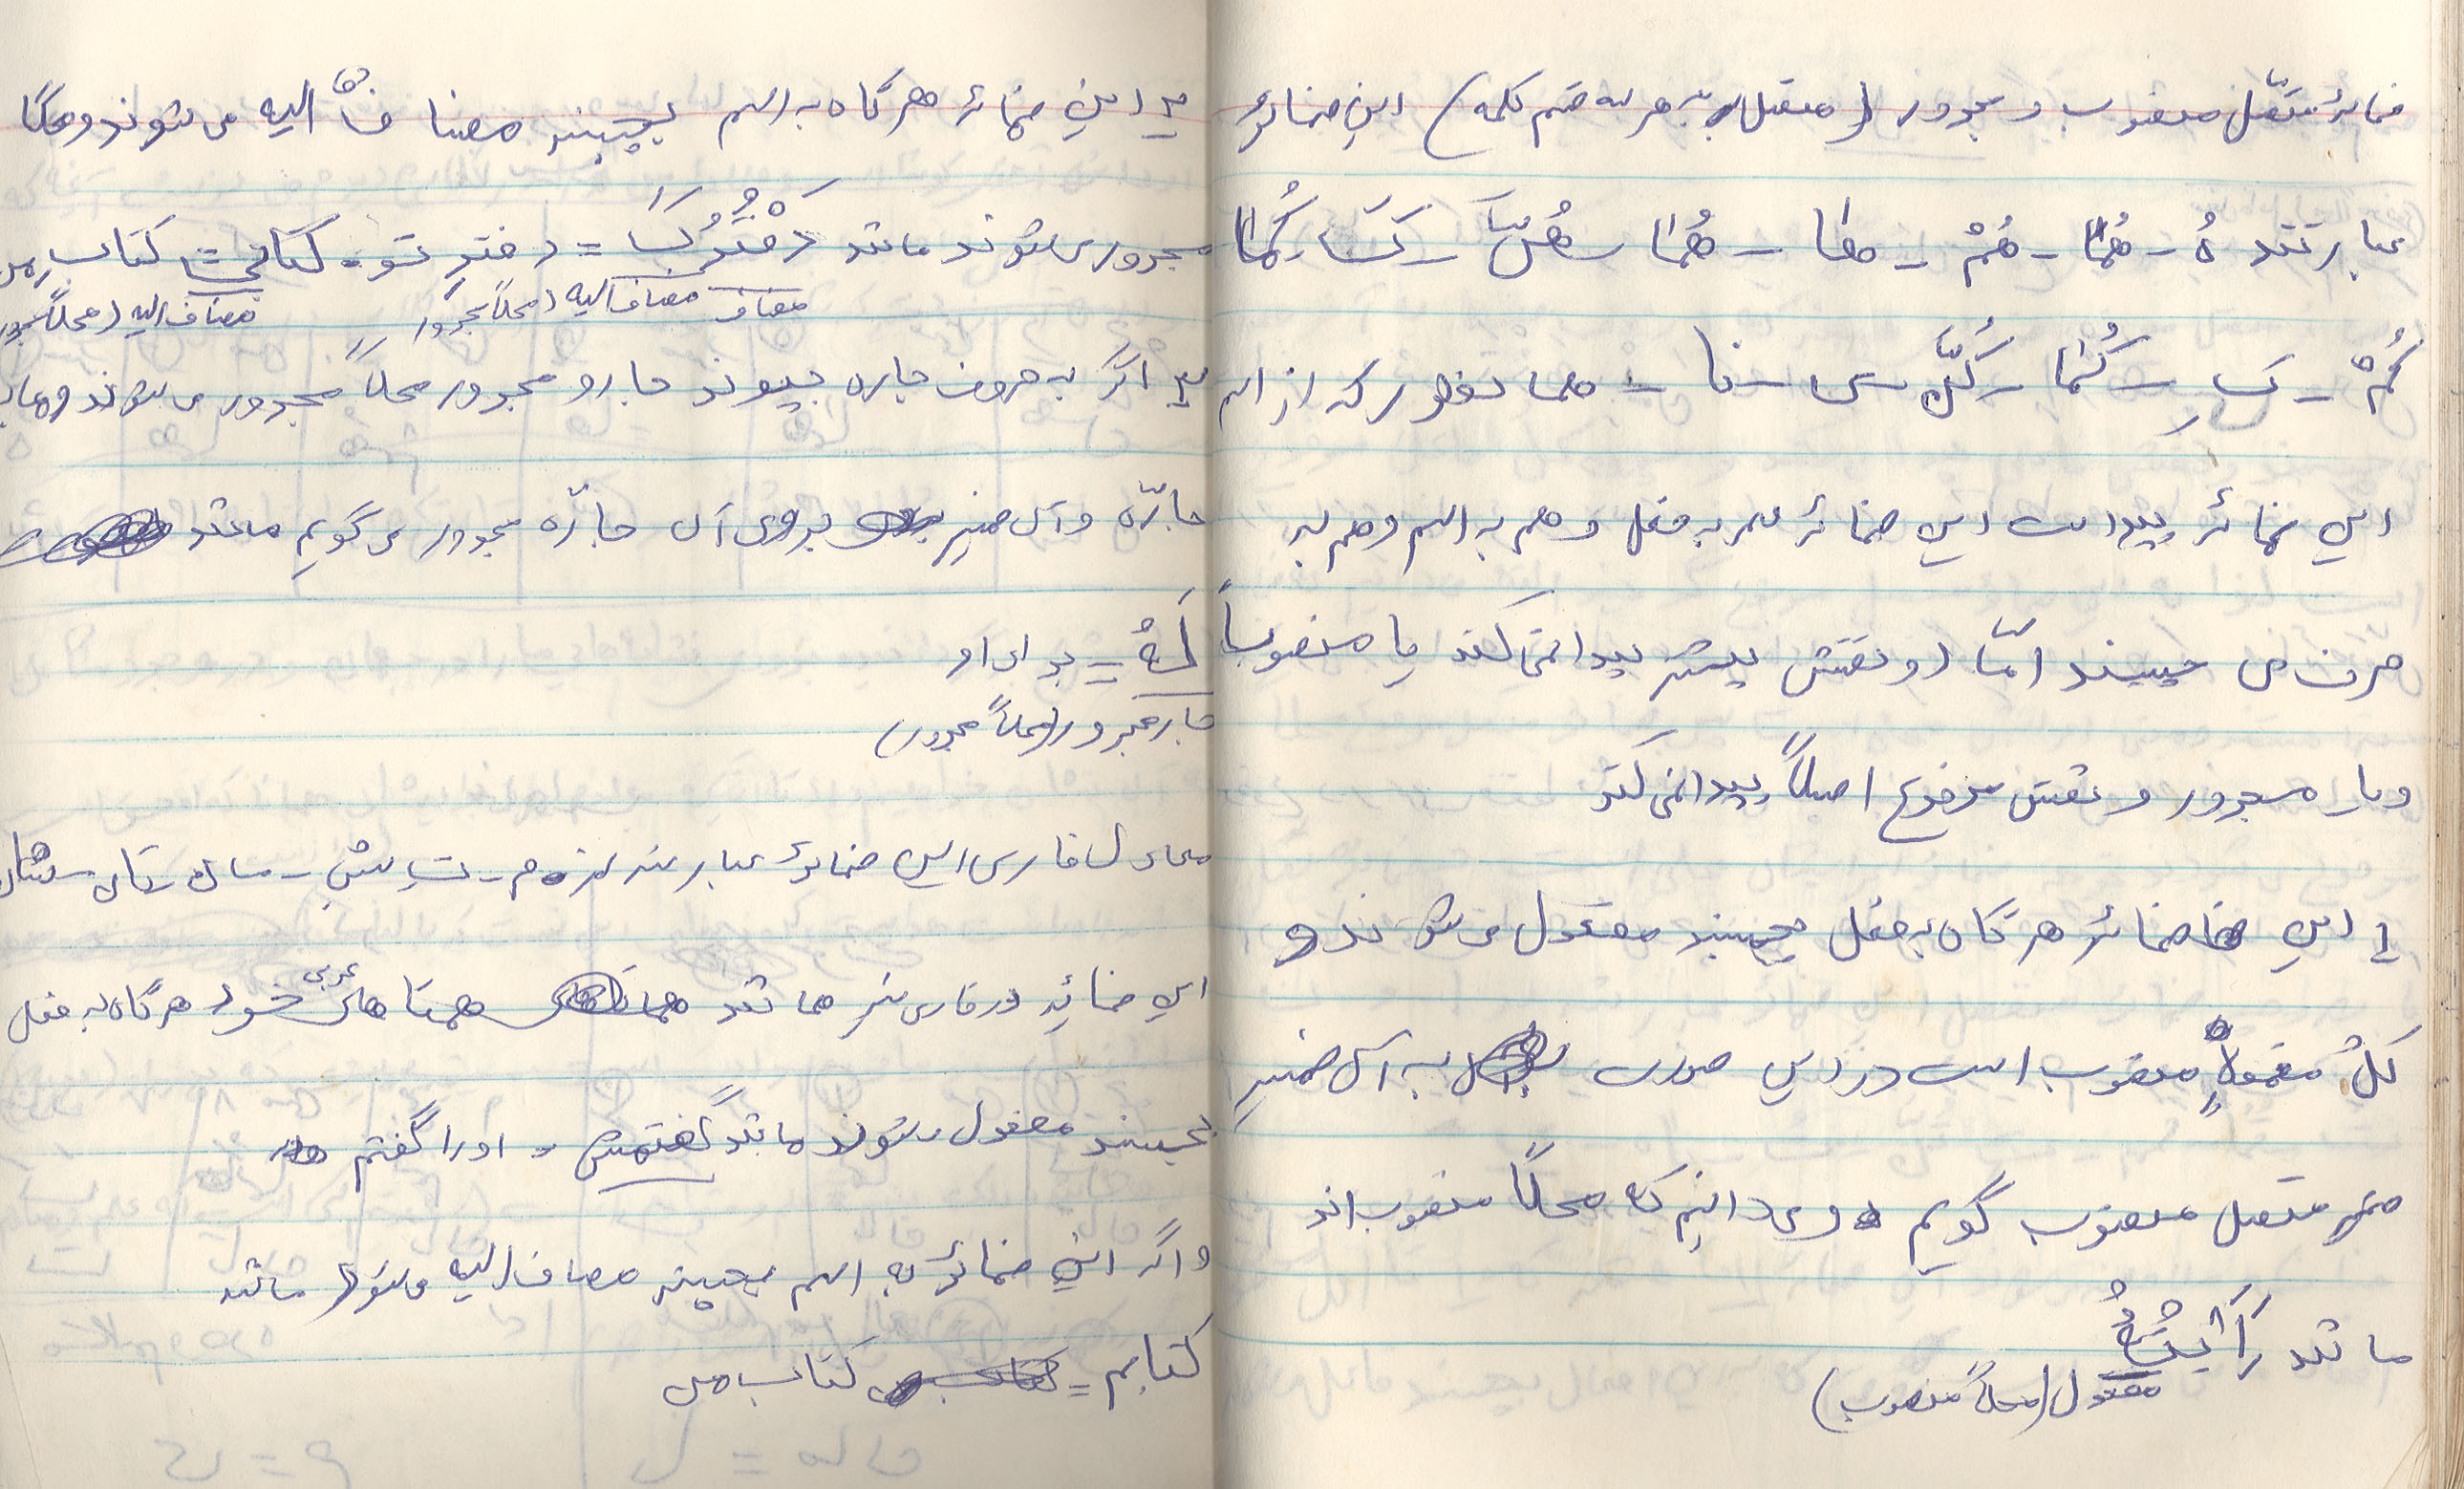 ضمائر متّصل منصوب و مجرور (متصل به هر سه قسم کلمه) این ضمائر
عبارتند هُ - هُمَا - هُمْ - ها - هُمَا - هُنَّ - کَ - کُمَا
کُمْ - کِ - کُمَا - کُنَّ - ی - نا - همانطور که از اسم
این ضمائر پیداست این ضمائر هم به فعل و هم به اسم و هم به
حرف می چسبند امّا دو نقش بیشتر پیدا نمی کنند یا منصوباً
و یا مجرور و نقش مرفوع اصلاً پیدا نمی کنند
۱ این ضمائر هرگاه به فعل بچسبند مفعول می شوند و
کلُّ مفعولٍ منصوب است در این صورت به آن ضمیرِ
ضمیر متصل منصوب گویم و می دانیم که محلاً منصوب اند
مانند رَأَیْتُهُ
مفعول (محلاً منصوب)
۲ این ضمائر هرگاه به اسم بچسبند مضافٌ الیه می شوند و محلاً
مجرور می شوند مانند دَفْتَرُکَ = دفتر تو - کتابی = کتاب من
مضاف مضاف الیه (محلاً مجرور) مضاف الیه (محلاً مجرور
۳ اگر به حروف جاره بپیوند جار و مجرور محلاً مجرور می شوند و ما به
جارّه و آن ضمیر بروی آن جارّه مجرور می گویم مانند
لَهُ = برای او
جار مجرور (محلاً مجرور)
معادل فارسی این ضمائر عبارتند از م - ت - ش - مان - تان - شان
این ضمائر در فارسی نیز مانند همتاهای عربی خود هرگاه به فعل
بچسبند مفعول می شوند مانند گفتمش = او را گفتم
و اگر این ضمائر به اسم بچسبند مضاف الیه می شوند مانند
کتابم = کتاب من